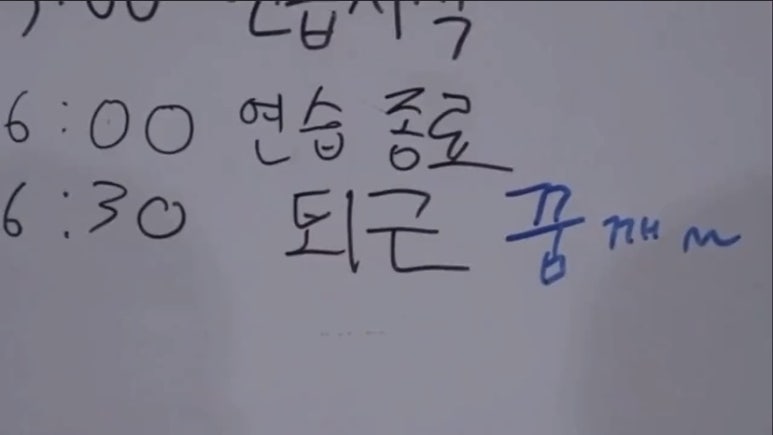 :00 연습시작
6:00 연습 종료
6:30 퇴근 꿈 깨~